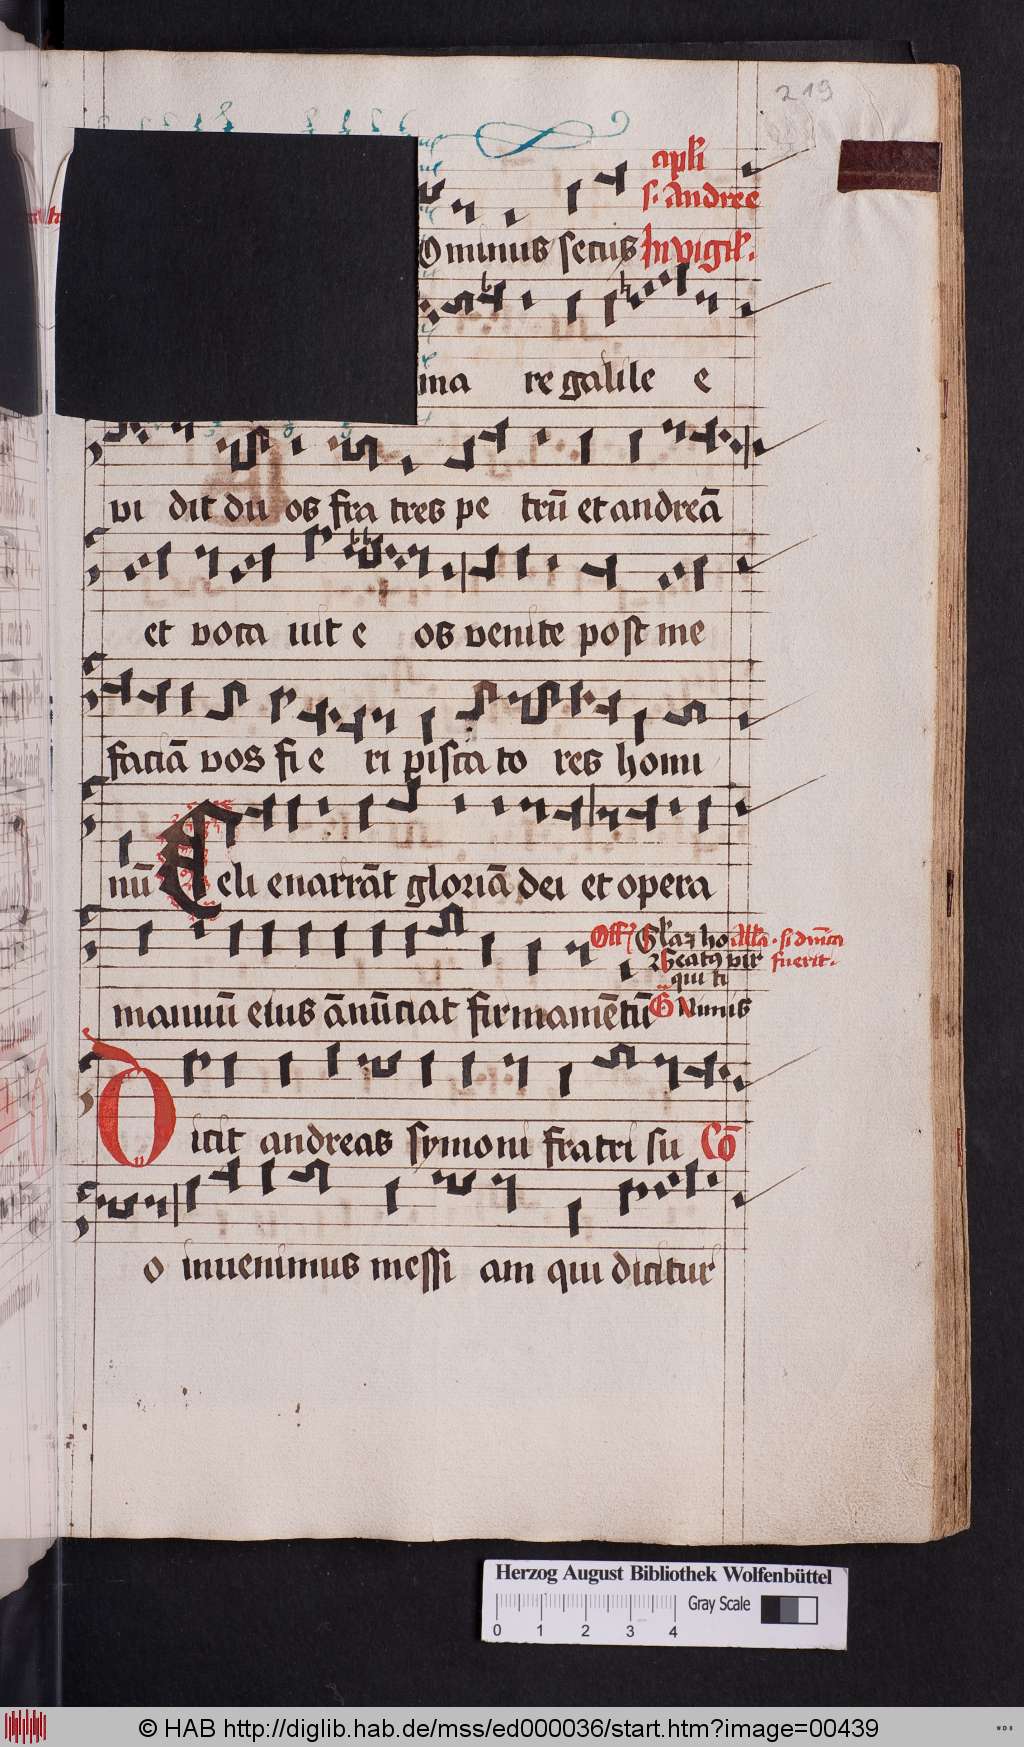 219
apli
s. Andree
ominus secus In vigil.
ma re galile e
vi dit du os fra tres pe trū et andreā
et voca uit e os venite post me
faciā vos fi e ri pisca to res homi
nū Celi enarrāt gloriā dei et opera
manuū eius ānūciat firmamētū
Off Gla ⁊ ho Alla. si dnica
fuerit.
qui ti
Nimis
Dicit andreas symoni fratri su Cō
o inuenimus messi am qui dicitur
Herzog August Bibliothek Wolfenbüttel
Gray Scale
0 1 2 3 4
© HAB http://diglib.hab.de/mss/ed000036/start.htm?image=00439